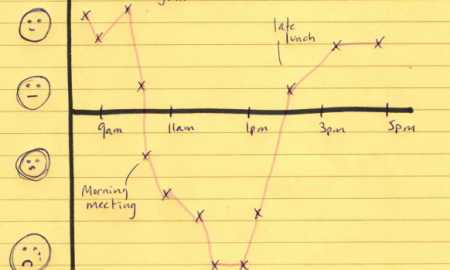 late
lunch
9am
11am
1pm
3pm
5pm
Morning
meeting